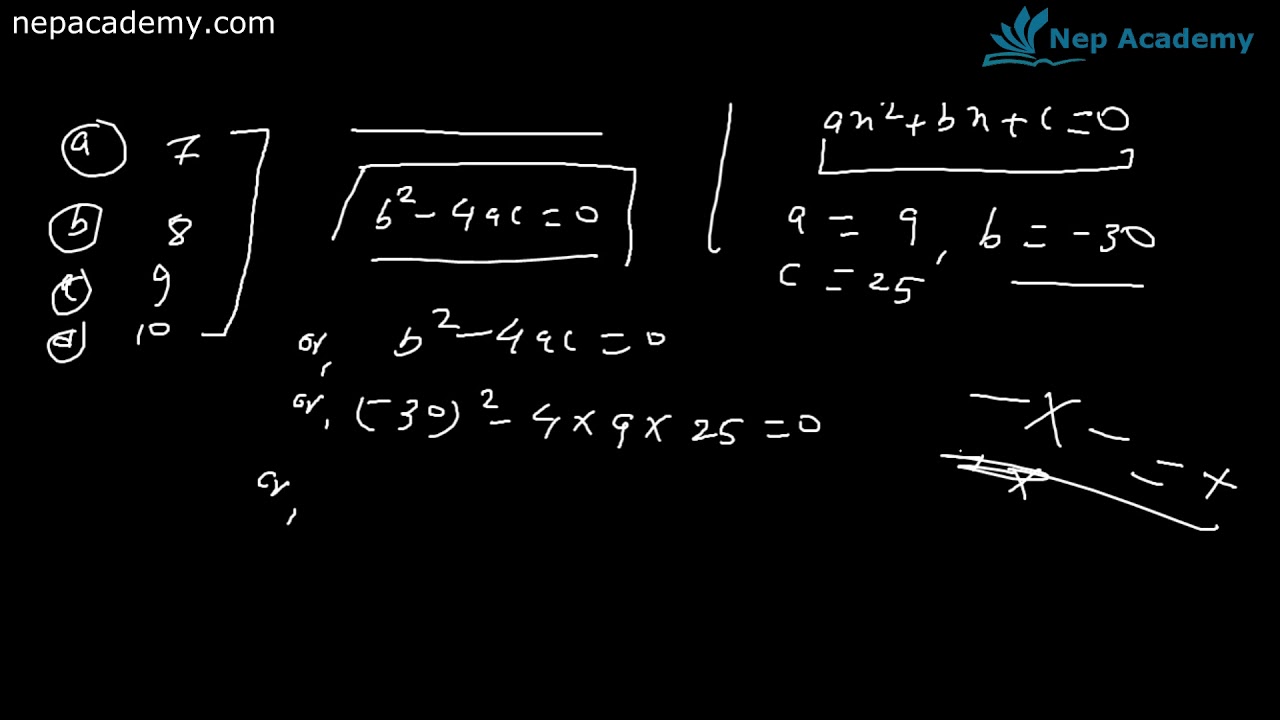 nepacademy.com
Nep Academy
a 7
b 8
c 9
d 10
b² - 4ac = 0
ax² + bx + c = 0
a = 9, b = -30
c = 25
or, b² - 4ac = 0
or, (-30)² - 4 × 9 × 25 = 0
or,
- x -
= x
x